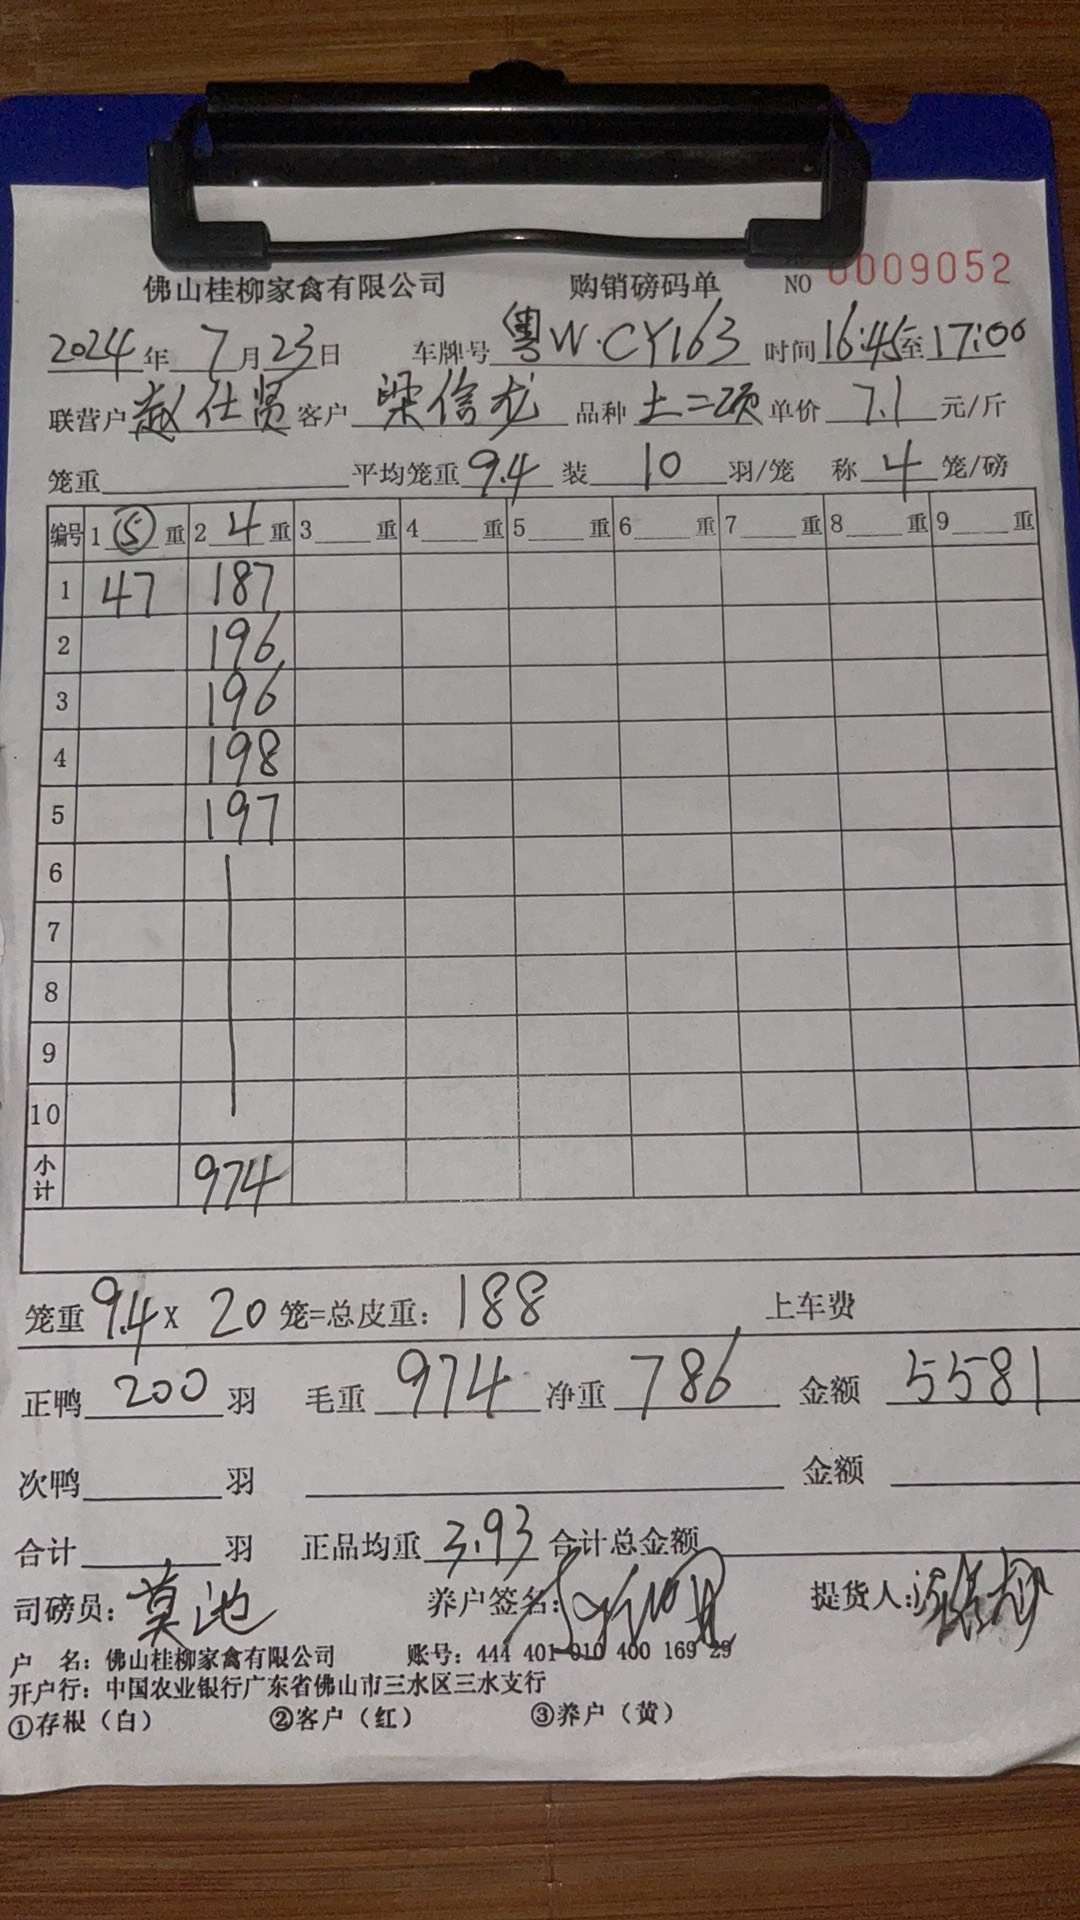 佛山桂柳家禽有限公司 购销磅码单 NO 0009052
2024年 7月23日 车牌号 粤W·CY163 时间 16:45至17:00
联营户 赵仕贤 客户 梁信龙 品种 土二项 单价 7.1 元/斤
笼重 平均笼重 9.4 装 10 羽/笼 称 4 笼/磅
编号 1 ⑤ 重 2 4 重 3 重 4 重 5 重 6 重 7 重 8 重 9 重
1 47 187
2 196
3 196
4 198
5 197
6
7
8
9
10
小计 974
笼重 9.4 X 20 笼=总皮重: 188 上车费
正鸭 200 羽 毛重 974 净重 786 金额 5581
次鸭 羽 金额
合计 羽 正品均重 3.93 合计总金额
司磅员: 莫池 养户签名: 提货人:
户 名: 佛山桂柳家禽有限公司 账号: 444 401 010 400 169 29
开户行: 中国农业银行广东省佛山市三水区三水支行
①存根（白） ②客户（红） ③养户（黄）